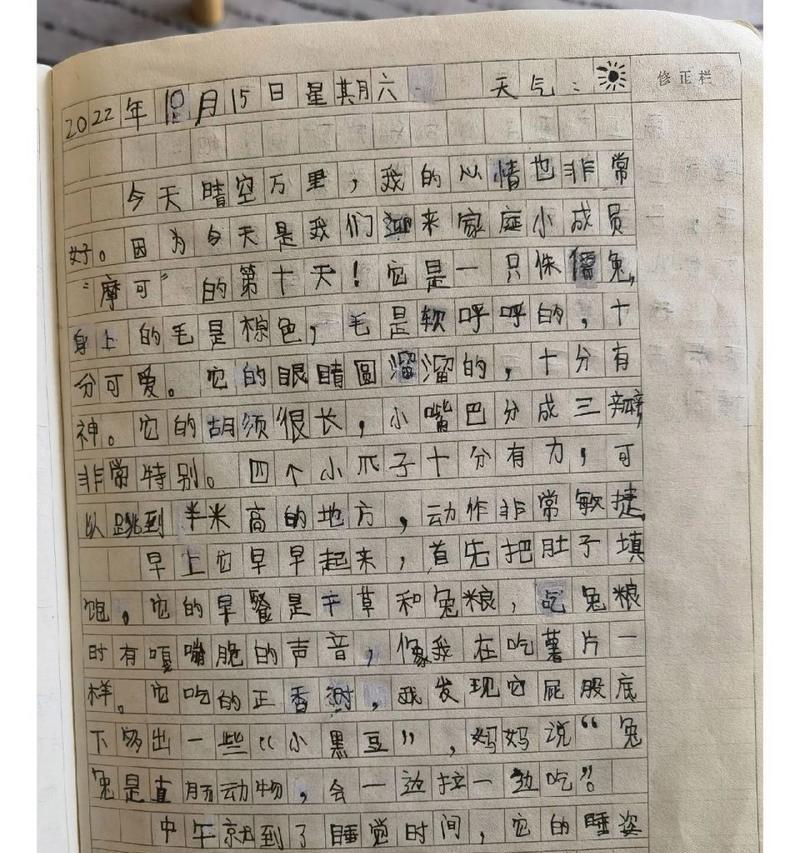 修正栏
2022年10月15日星期六 天气：
今天晴空万里，我的心情也非常
好。因为今天是我们迎来家庭小成员
“摩可”的第十天！它是一只侏儒兔，
身上的毛是棕色，毛是软呼呼的，十
分可爱。它的眼睛圆溜溜的，十分有
神。它的胡须很长，小嘴巴分成三瓣，
非常特别。四个小爪子十分有力，可
以跳到半米高的地方，动作非常敏捷
早上它早早起来，首先把肚子填
饱，它的早餐是干草和兔粮，吃兔粮
时有嘎嘣脆的声音，像我在吃薯片一
样。它吃的正香时，我发现它屁股底
下多出一些“小黑豆”，妈妈说“兔
兔是直肠动物，会一边拉一边吃”。
中午就到了睡觉时间，它的睡姿